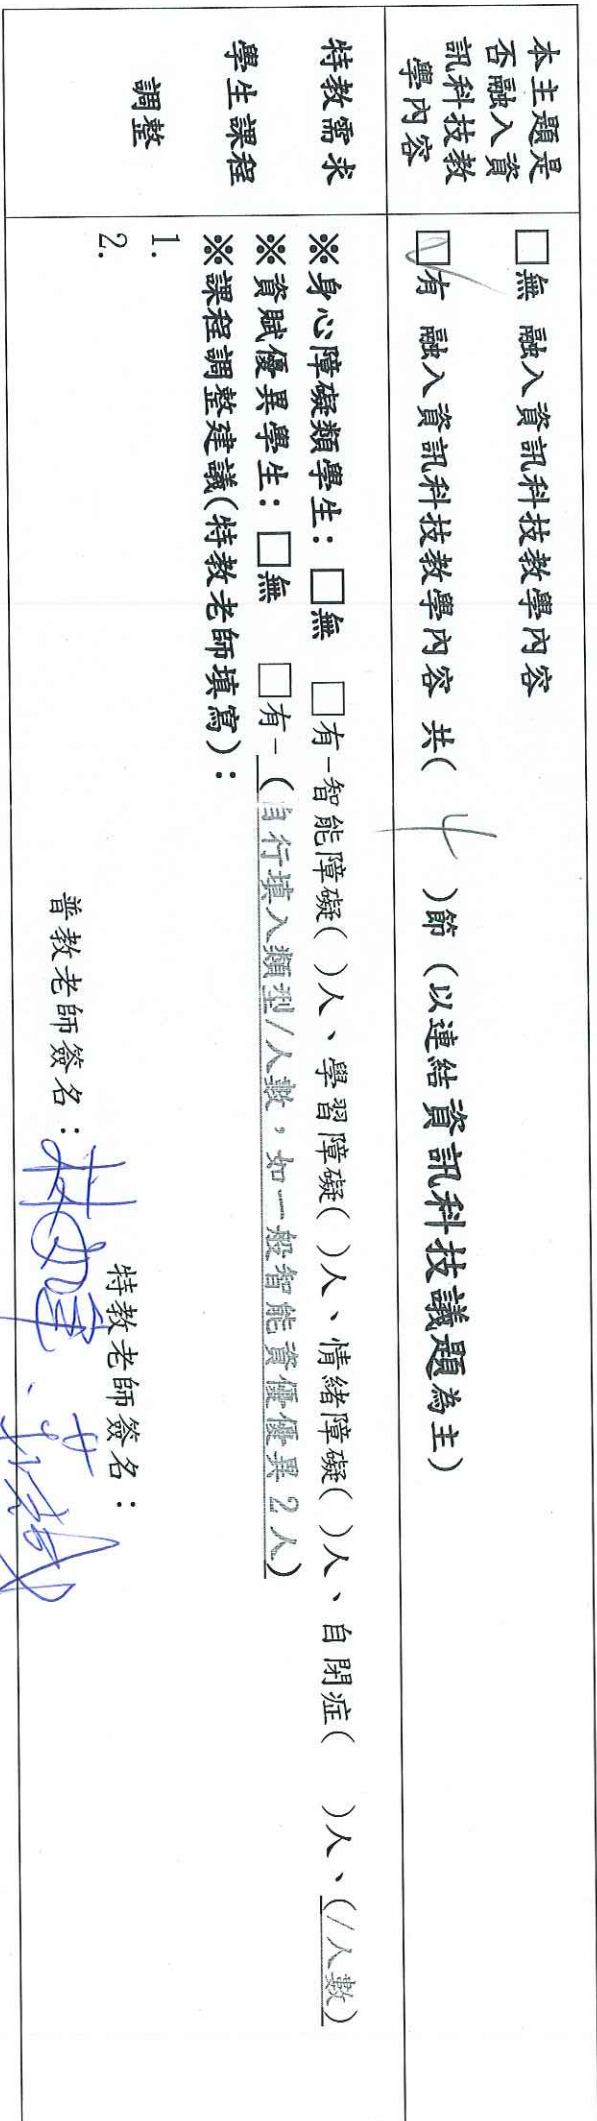 本主題是
否融入資
訊科技教
學內容
□無 融入資訊科技教學內容
☑有 融入資訊科技教學內容 共( 4 )節 (以連結資訊科技議題為主)
特教需求
學生課程
調整
※身心障礙類學生：□無 □有-智能障礙( )人、學習障礙( )人、情緒障礙( )人、自閉症( )人、(/人數)
※資賦優異學生：□無 □有-(自行填入類型/人數，如一般智能資優優異2人)
※課程調整建議(特教老師填寫)：
1.
2.
特教老師簽名：
普教老師簽名：